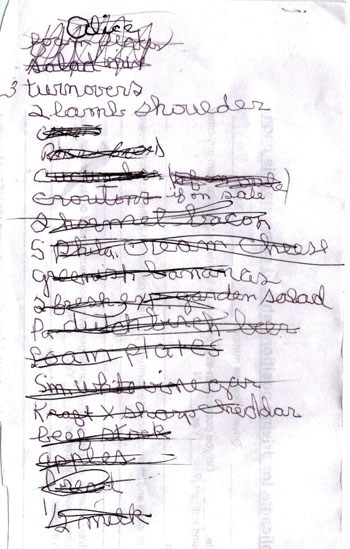 Alice
foam plates
salad mix
3 turnovers
2 lamb shoulder
croutons if on sale
2 hormel bacon
5 Phila. cream cheese
greenish bananas
2 fresh exp garden salad
birch beer
foam plates
Sm white vinegar
Kraft X sharp cheddar
beef stock
apples
bread
1/2 milk